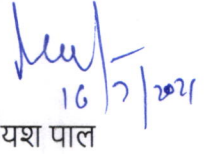 16/7/2021
यश पाल